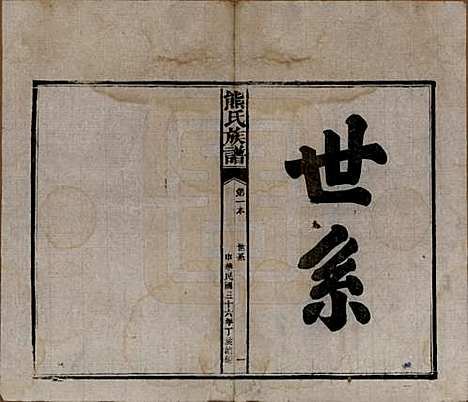 世系
熊氏族譜
第一本
世系
一
中華民國三十六年丁亥